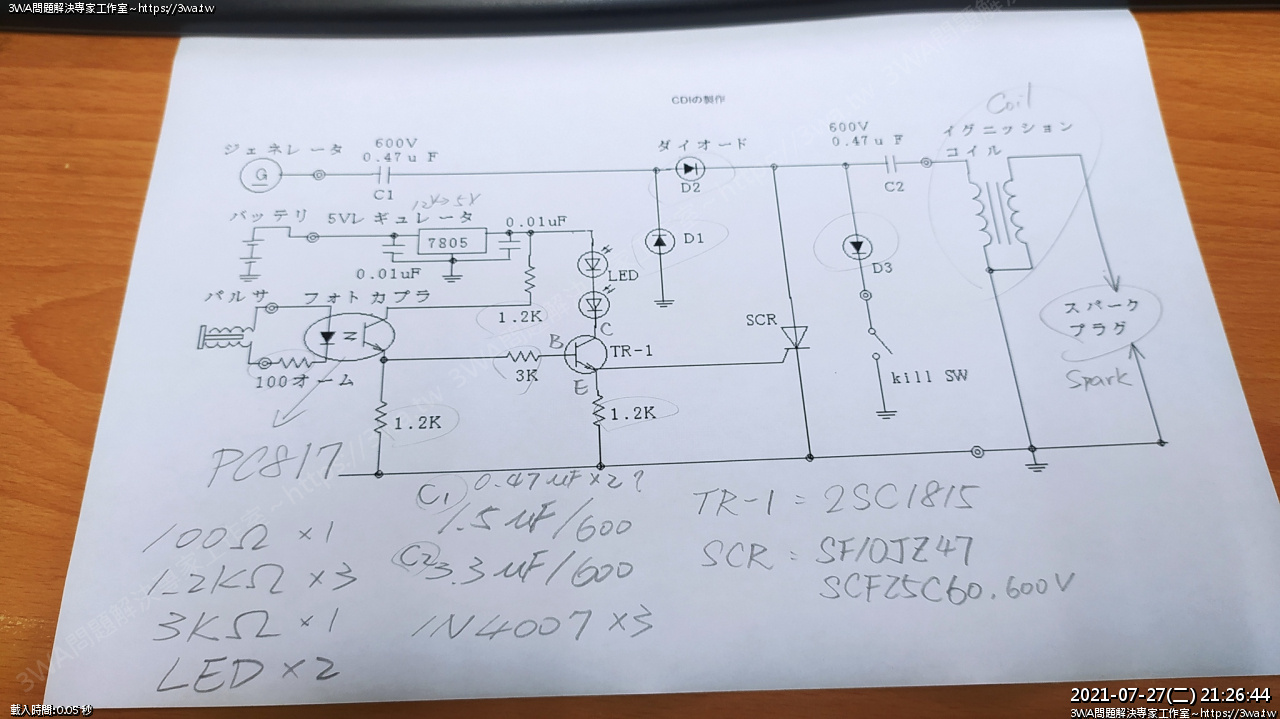 3WA問題解決專家工作室~https://3wa.tw
CDIの製作
Coil
ジェネレータ
600V
0.47uF
G
C1
ダイオード
D2
600V
0.47uF
C2
イグニッション
コイル
バッテリ
5Vレギュレータ
12V→5V
0.01uF
7805
0.01uF
LED
D1
D3
パルサ
フォトカプラ
1.2K
C
B
TR-1
SCR
スパーク
プラグ
100オーム
3K
E
kill SW
Spark
1.2K
1.2K
PC817
C1
0.47uF×2?
1.5uF/600
C2
3.3uF/600
1N4007 ×3
100Ω ×1
1.2KΩ ×3
3KΩ ×1
LED ×2
TR-1 = 2SC1815
SCR : SF10JZ47
SCF25C60.600V
載入時間:0.05 秒
2021-07-27(二) 21:26:44
3WA問題解決專家工作室~https://3wa.tw